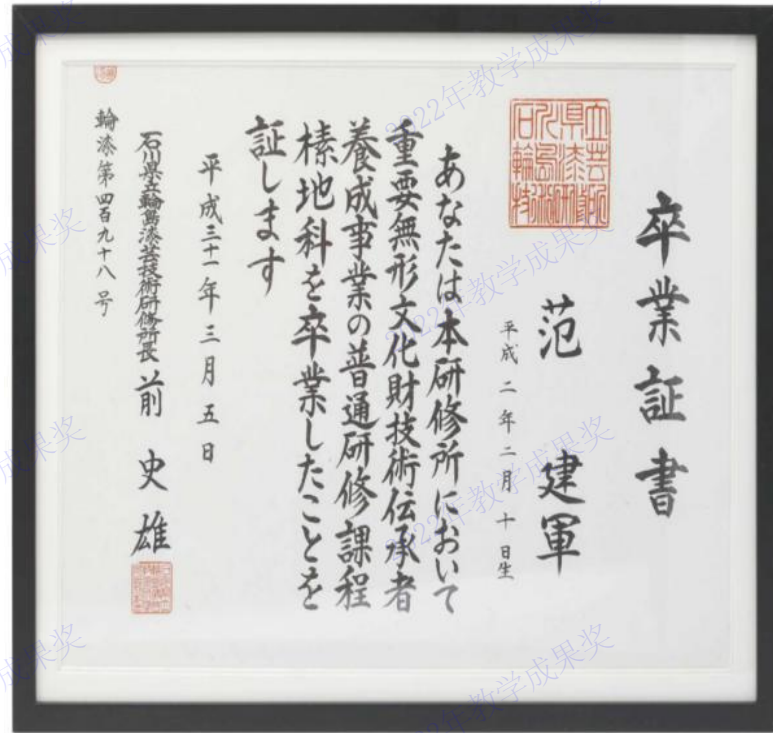 卒業証書
范 建軍
平成二年二月十日生
あなたは本研修所において
重要無形文化財技術伝承者
養成事業の普通研修課程
榡地科を卒業したことを
証します
平成三十一年三月五日
石川県立輪島漆芸技術研修所長 前 史雄
輪漆第四百九十八号
2022年教学成果奖